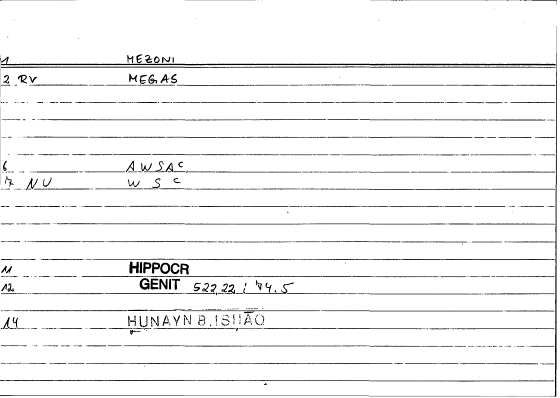 1 MEZONI
2 RV MEGAS
6 AWSAC
7 NU WSC
11 HIPPOCR
12 GENIT 522,22 : 74.5
14 HUNAYN B. ISḤĀQ